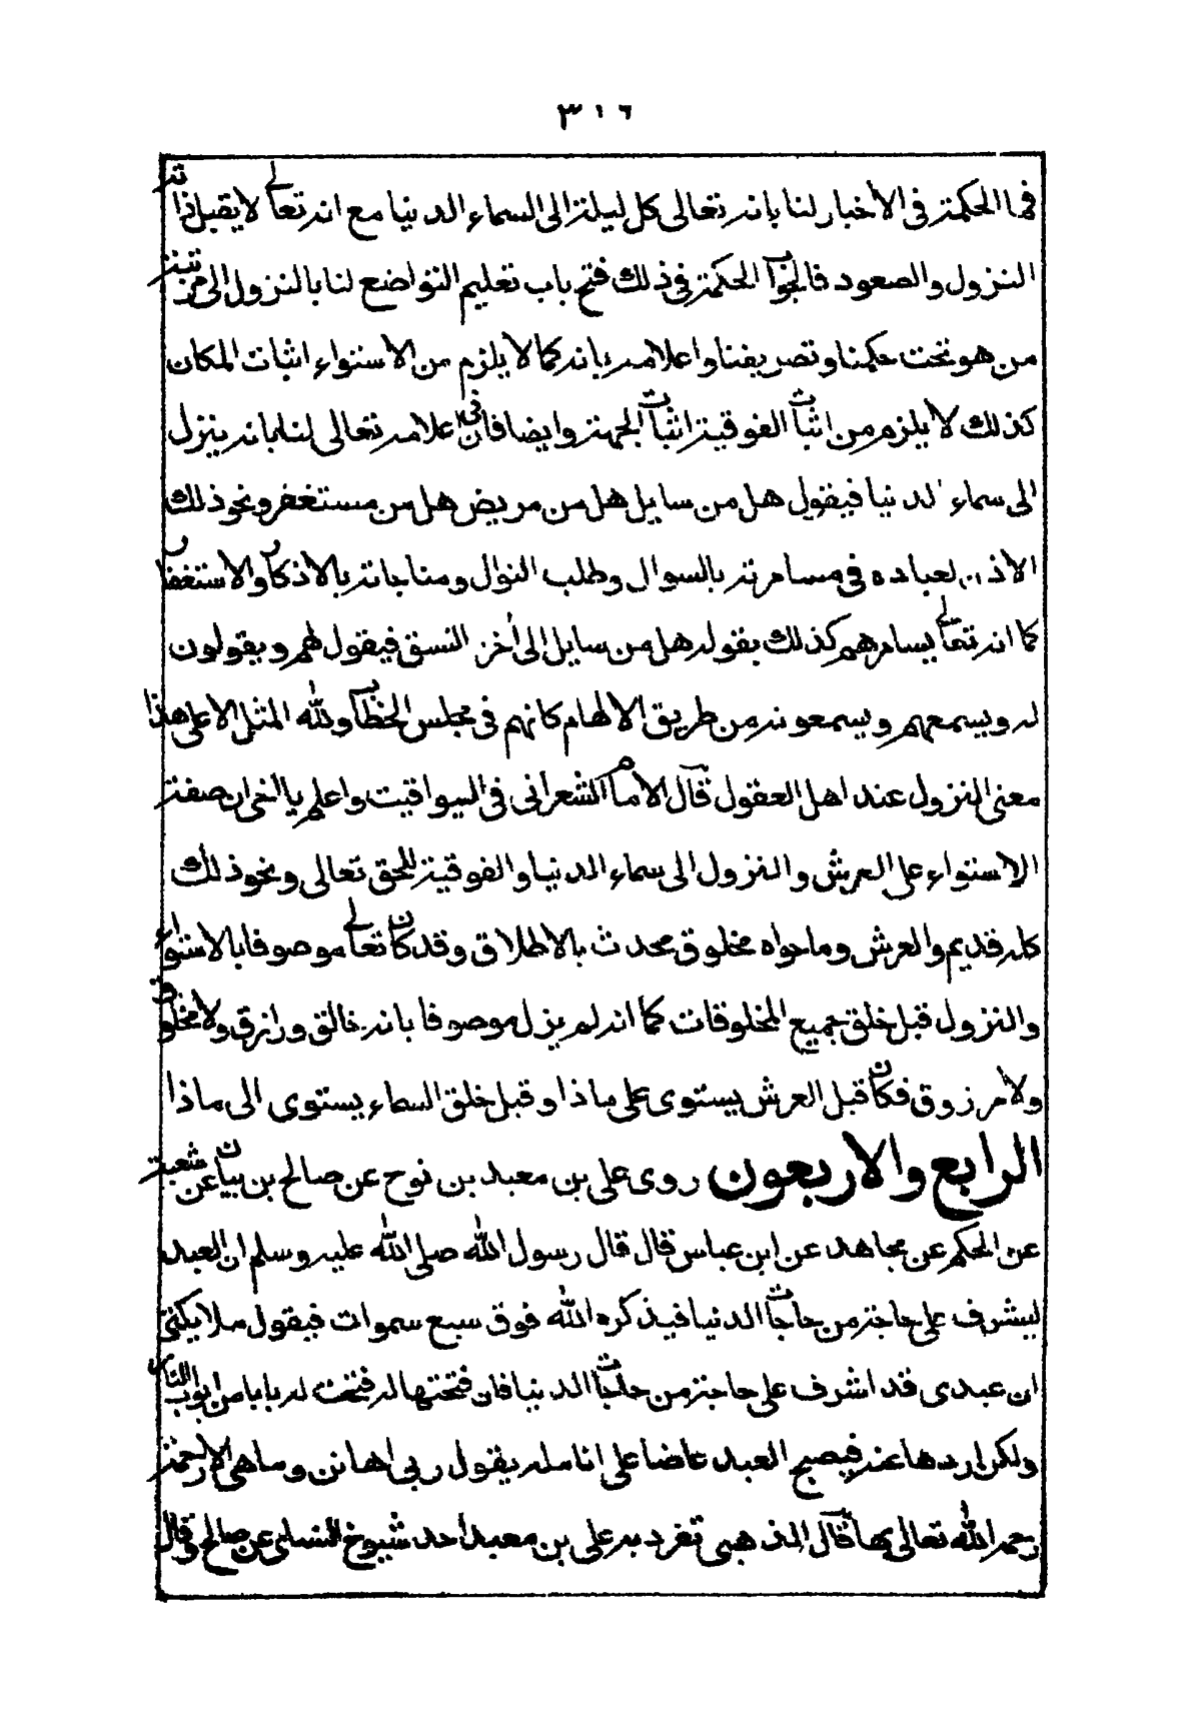 ٣١٦
فما الحكمة في الأخبار لنا بانه تعالى كل ليلة الى السماء الدنيا مع انه تعالى لا يقبل ذاته
النزول والصعود فالجواب الحكمة في ذلك فتح باب تعليم التواضع لنا بالنزول الى مرتبة
من هو تحت حكمنا وتصريفنا واعلامه بانه كما لا يلزم من الاستواء اثبات المكان
كذلك لا يلزم من اثبات الفوقية اثبات الجهة وايضا فان في اعلامه تعالى لنا بانه ينزل
الى سماء الدنيا فيقول هل من سايل هل من مريض هل من مستغفر ونحو ذلك
الاذن لعباده في مسامرته بالسوال وطلب النوال ومناجاته بالاذكار والاستغفار
كما انه تعالى يسامرهم كذلك بقوله هل من سايل الى أخر النسق فيقول لهم ويقولون
له ويسمعهم ويسمعونه من طريق الالهام كانهم في مجلس الخطاب ولله المثل الاعلى هذا
معنى النزول عند اهل العقول قال الامام الشعراني في اليواقيت واعلم يا اخي ان صفة
الاستواء على العرش والنزول الى سماء الدنيا والفوقية للحق تعالى ونحو ذلك
كله قديم والعرش وما حواه مخلوق محدث بالاطلاق وقد كان تعالى موصوفا بالاستواء
والنزول قبل خلق جميع المخلوقات كما انه لم يزل موصوفا بانه خالق ورازق ولا مخلوق
ولا مرزوق فكان قبل العرش يستوى على ماذا وقبل خلق السماء يستوى الى ماذا
الرابع والاربعون روى على بن معبد بن نوح عن صالح بن بيان عن شعبة
عن الحكم عن مجاهد عن ابن عباس قال قال رسول الله صلى الله عليه وسلم ان العبد
ليشرف على حاجة من حاجات الدنيا فيذكره الله فوق سبع سموات فيقول ملايكتى
ان عبدى قد اشرف على حاجة من حاجات الدنيا فان فتحتها له فتحت له بابا من ابواب النار
ولكن ازدها عنه فيصبح العبد عاضا على انامله يقول ربى اهانن وما هى الا رحمة
رحمه الله تعالى بها قال الذهبى تفرد به على بن معبد أحد شيوخ النساى عن صالح وقال